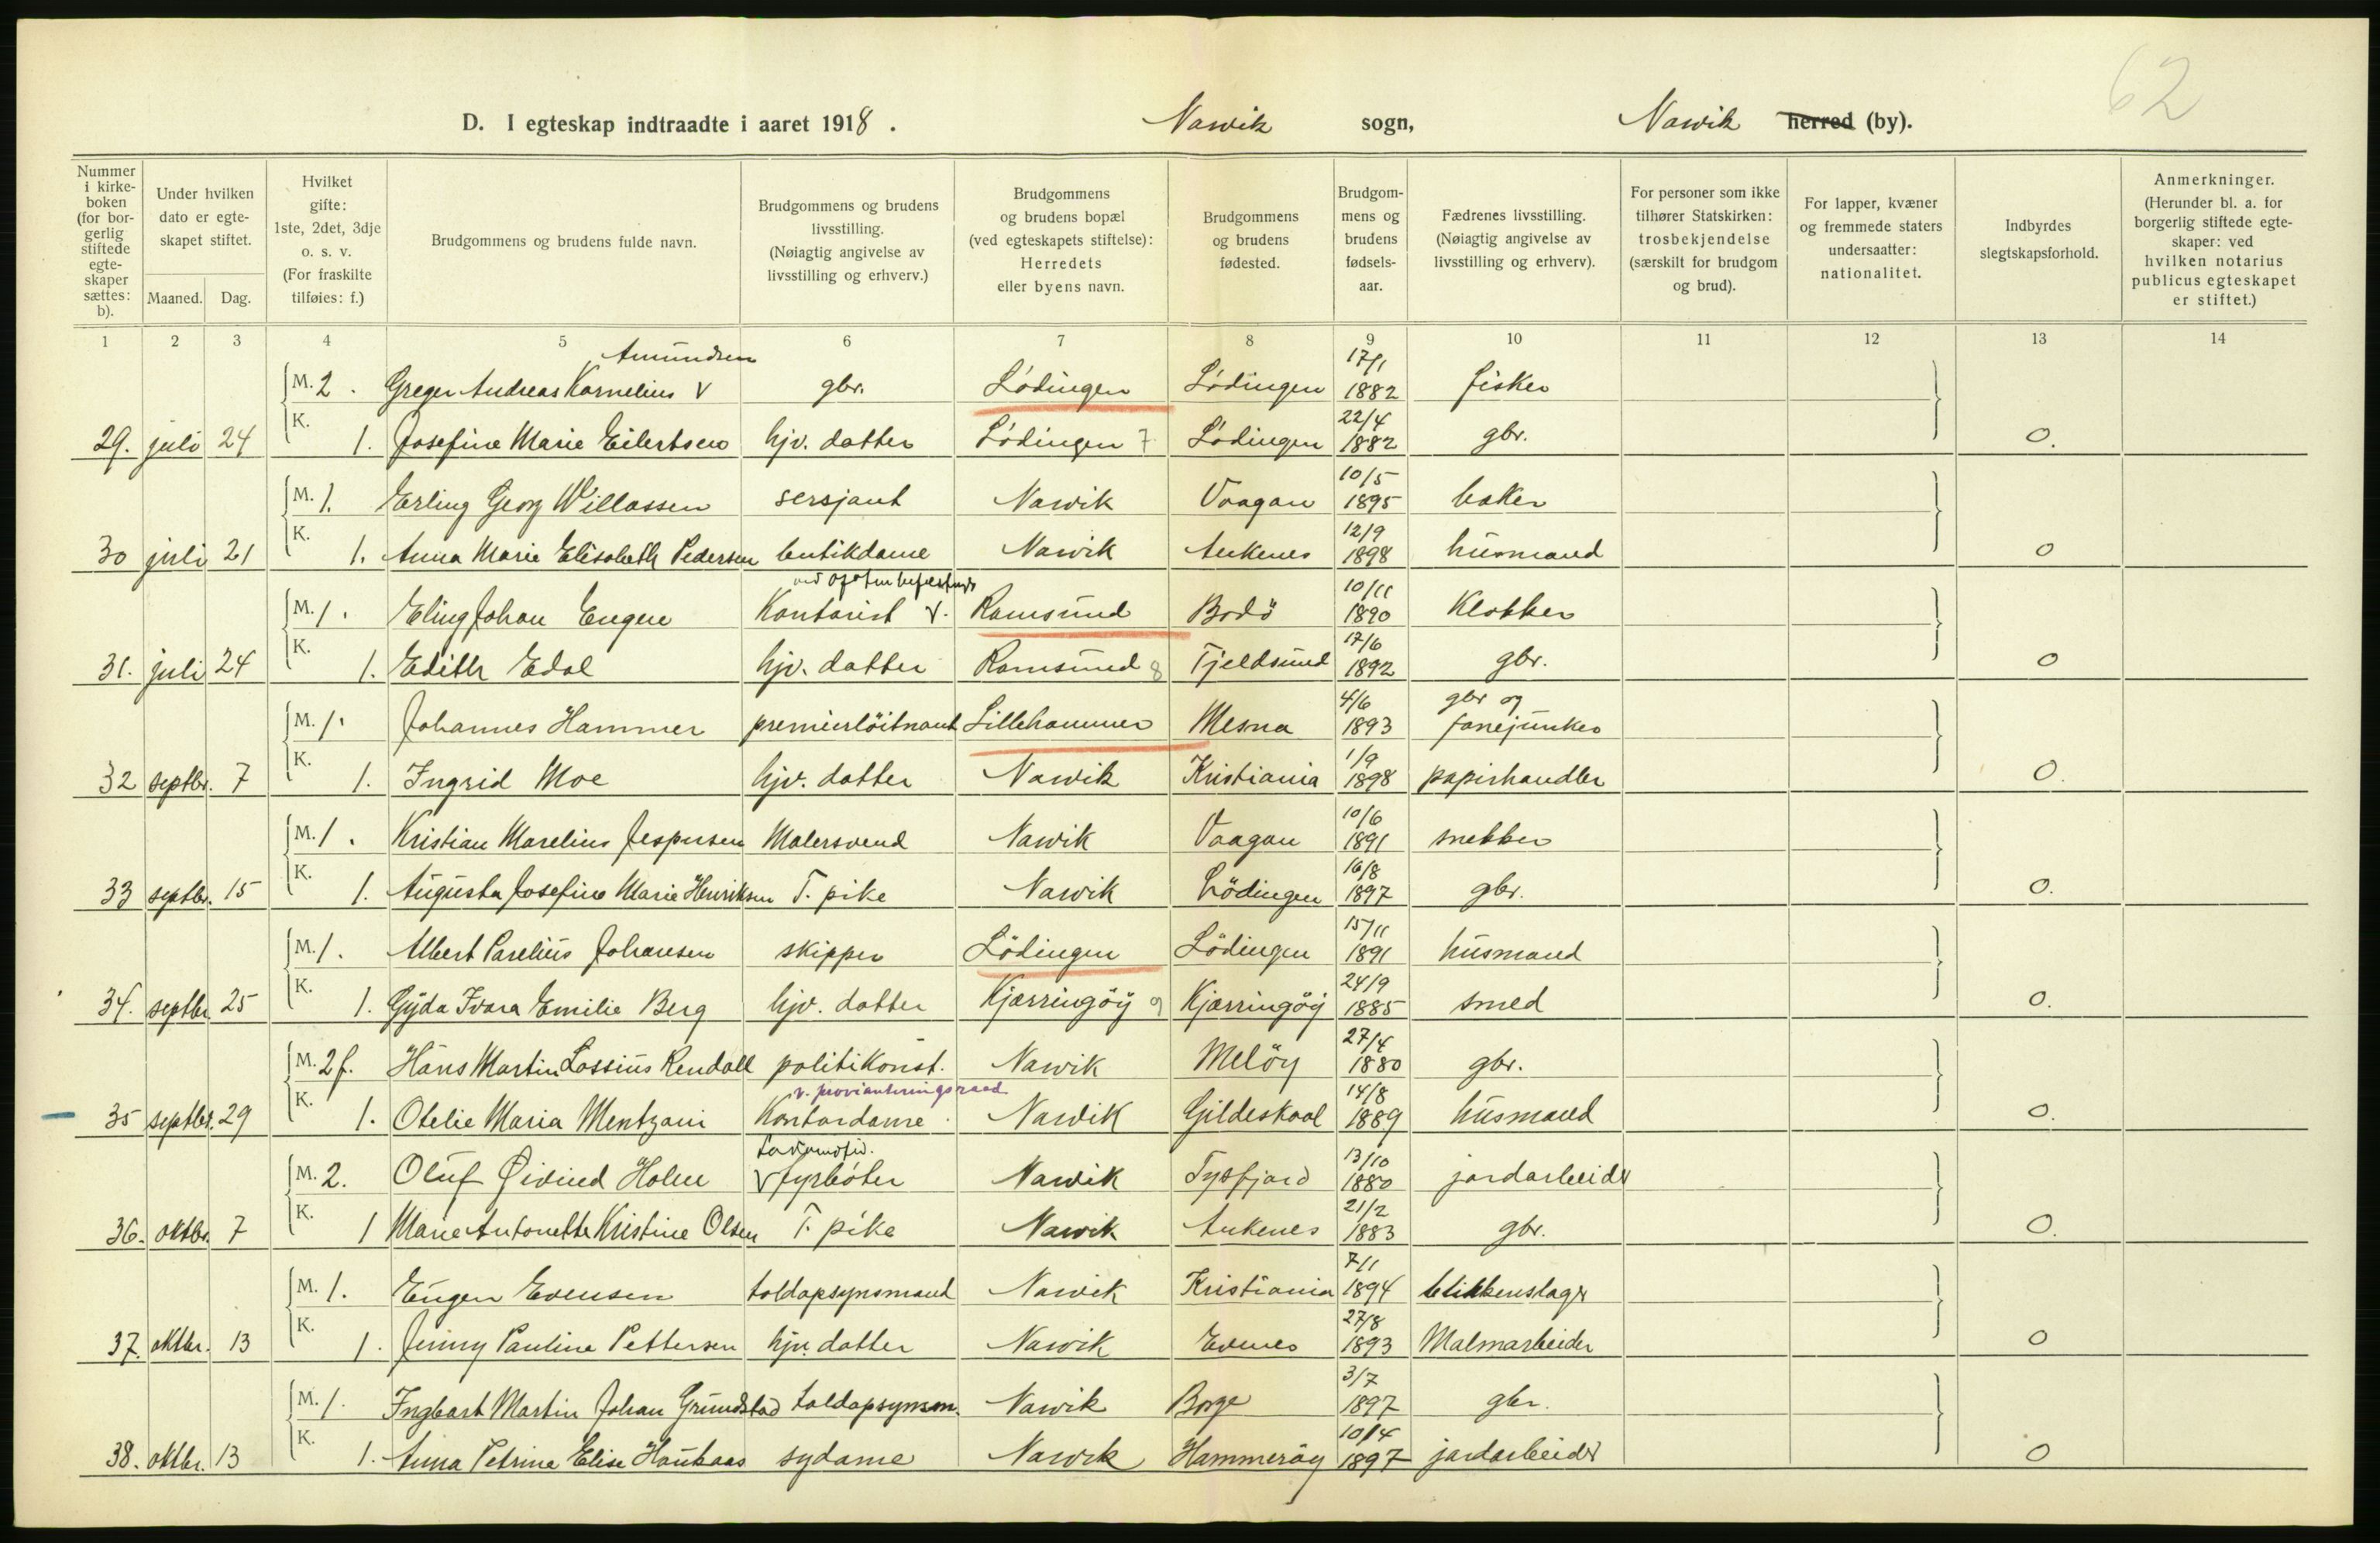 62
D. I egteskap indtraadte i aaret 1918. Narvik sogn, Narvik herred (by).
Nummer i kirke-boken (for bor-gerlig stiftede egte-skaper sættes: b). Under hvilken dato er egte-skapet stiftet. Maaned. Dag. Hvilket gifte: 1ste, 2det, 3dje o. s. v. (For fraskilte tilføies: f.) Brudgommens og brudens fulde navn. Brudgommens og brudens livsstilling. (Nøiagtig angivelse av livsstilling og erhverv.) Brudgommens og brudens bopæl (ved egteskapets stiftelse): Herredets eller byens navn. Brudgommens og brudens fødested. Brudgom-mens og brudens fødsels-aar. Fædrenes livsstilling. (Nøiagtig angivelse av livsstilling og erhverv). For personer som ikke tilhører Statskirken: trosbekjendelse (særskilt for brudgom og brud). For lapper, kvæner og fremmede staters undersaatter: nationalitet. Indbyrdes slegtskapsforhold. Anmerkninger. (Herunder bl. a. for borgerlig stiftede egte-skaper: ved hvilken notarius publicus egteskapet er stiftet.)
1 2 3 4 5 6 7 8 9 10 11 12 13 14
Amundsen 17/1
M. 2. Greger Andreas Kornelius V gbr. Lödingen Lödingen 1882 fisker
22/4
29. juli 24 K. 1. Josefine Marie Eilertsen hjv. datter Lödingen 7 Lödingen 1882 gbr. 0.
10/5
M. 1. Erling Georg Willassen sersjant Narvik Vaagan 1895 baker
12/9
30 juli 21 K. 1. Anna Marie Elisabeth Pedersen butikdame Narvik Ankenes 1898 husmand 0
ved Ofoten befestning 10/11
M. 1. Eling Johan Engen Kontorist V. Ramsund Bodö 1890 Klokker
17/6
31. juli 24 K. 1. Edith Edal hjv. datter Ramsund 8 Tjeldsund 1892 gbr. 0
4/6 gbr og
M. 1. Johannes Hammer premierlöitnant Lillehammer Mesna 1893 fanejunker
1/9
32 septbr. 7 K. 1. Ingrid Moe hjv. datter Narvik Kristiania 1898 papirhandler 0.
10/6
M. 1. Kristian Marelius Jespersen Malersvend Narvik Vaagan 1891 snekker
16/8
33 septbr. 15 K. 1. Augusta Josefine Marie Henriksen T. pike Narvik Lödingen 1897 gbr. 0.
15/11
M. 1. Albert Parelius Johansen skipper Lödingen Lödingen 1891 husmand
24/9
34. septbr 25 K. 1. Gyda Ivara Emilie Berg hjv. datter Kjærringöy 9 Kjærringöy 1885 smed 0.
27/4
M. 2 f. Hans Martin Lossius Rendall politikonst. Narvik Melöy 1880 gbr.
v. provianteringsraad 14/8
35 septbr. 29 K. 1. Otelie Maria Mentzoni Kontordame Narvik Gildeskaal 1889 husmand 0.
Lokomotiv. 13/10
M. 2. Oluf Øivind Holm V fyrböter Narvik Tysfjord 1880 jordarbeider
21/2
36. oktbr. 7 K. 1 Marie Antonette Kristine Olsen T. pike Narvik Ankenes 1883 gbr. 0.
7/1
M. 1. Eugen Evensen toldopsynsmand Narvik Kristiania 1894 blikkenslager
27/8
37. oktbr. 13 K. 1. Jenny Pauline Pettersen hjv. datter Narvik Evenes 1893 Malmarbeider 0
3/7
M. 1. Ingbart Martin Johan Grundstad toldopsynsm. Narvik Borge 1897 gbr.
10/4
38. oktbr. 13 K. 1. Anna Petrine Elise Haukaas sydame Narvik Hammeröy 1897 jordarbeider 0